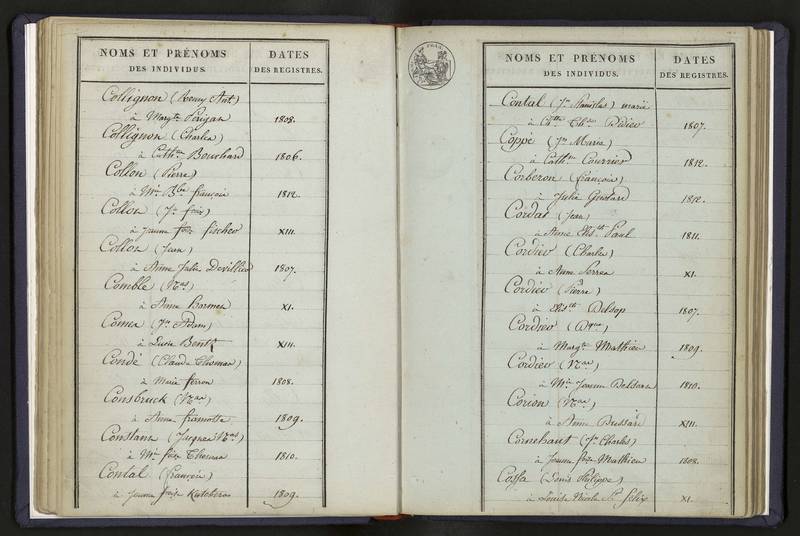 NOMS ET PRÉNOMS DATES
DES INDIVIDUS. DES REGISTRES.
Collignon (Remy Ant)
à Margte Périgan 1808.
Collignon (Charles)
à Cathne Bouchard 1806.
Collon (Pierre)
à Mie Bbe françois 1812.
Collon (Jn foix)
à Jeanne foise fischer XIII.
Collon (Jean)
à Anne Julie Devillier 1807.
Comble (Nas)
à Anne Barmen XI.
Comu (Jn Adam)
à Lucie Bentz XIII.
Condé (Claude Thomas)
à Marie ferron 1808.
Consbruck (Nas)
à Anne framotte 1809.
Constans (Jacques Nas)
à Mie foise Thomas 1810.
Contal (françois)
à Jeanne foise 1809.
NOMS ET PRÉNOMS DATES
DES INDIVIDUS. DES REGISTRES.
Contal (Jn Stanislas) marié
à Cthe Didier 1807.
Coppé (Jn Marie)
à Cathne Courrier 1812.
Corberon (françois)
à Julie 1812.
Cordat (Jean)
à Anne Elisth Paul 1811.
Cordier (Charles)
à Anne Perrea XI.
Cordier (Pierre)
à Elisth Delsop 1807.
Cordier (Dque)
à Margte Mathieu 1809.
Cordier (Nas)
à Mie Jeanne Delsann 1810.
Corion (Nas)
à Anne Bussard XIII.
Cornehaut (Jn Charles)
à Jeanne foise Mathieu 1808.
Cossa (Denis Philippe)
à Louise Nicole St felix XI.